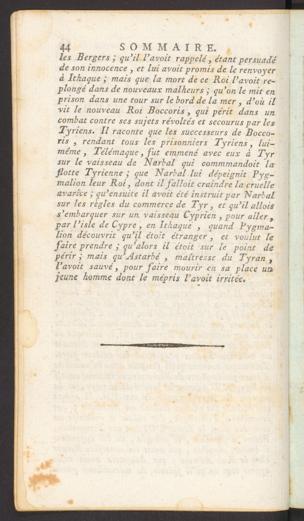 44 SOMMAIRE.
les Bergers ; qu'il l'avoit rappelé, étant persuadé
de son innocence, et lui avoit promis de le renvoyer
à Ithaque ; mais que la mort de ce Roi l'avoit re-
plongé dans de nouveaux malheurs ; qu'on le mit en
prison dans une tour sur le bord de la mer, d'où il
vit le nouveau Roi Bocchoris, qui périt dans un
combat contre ses sujets révoltés et secourus par les
Tyriens. Il raconte que les successeurs de Bocco-
ris, rendant tous les prisonniers Tyriens, lui-
même, Télémaque, fut emmené avec eux à Tyr
sur le vaisseau de Narbal qui commmandoit la
flotte Tyrienne ; que Narbal lui dépeignit Pyg-
malion leur Roi, dont il falloit craindre la cruelle
avarice ; qu'ensuite il avoit été instruit par Narbal
sur les règles du commerce de Tyr, et qu'il alloit
s'embarquer sur un vaisseau Cyprien, pour aller,
par l'isle de Cypre, en Ithaque, quand Pygma-
lion découvrit qu'il étoit étranger, et voulut le
faire prendre ; qu'alors il étoit sur le point de
périr ; mais qu'Astarbé, maîtresse du Tyran,
l'avoit sauvé, pour faire mourir en sa place un
jeune homme dont le mépris l'avoit irritée.